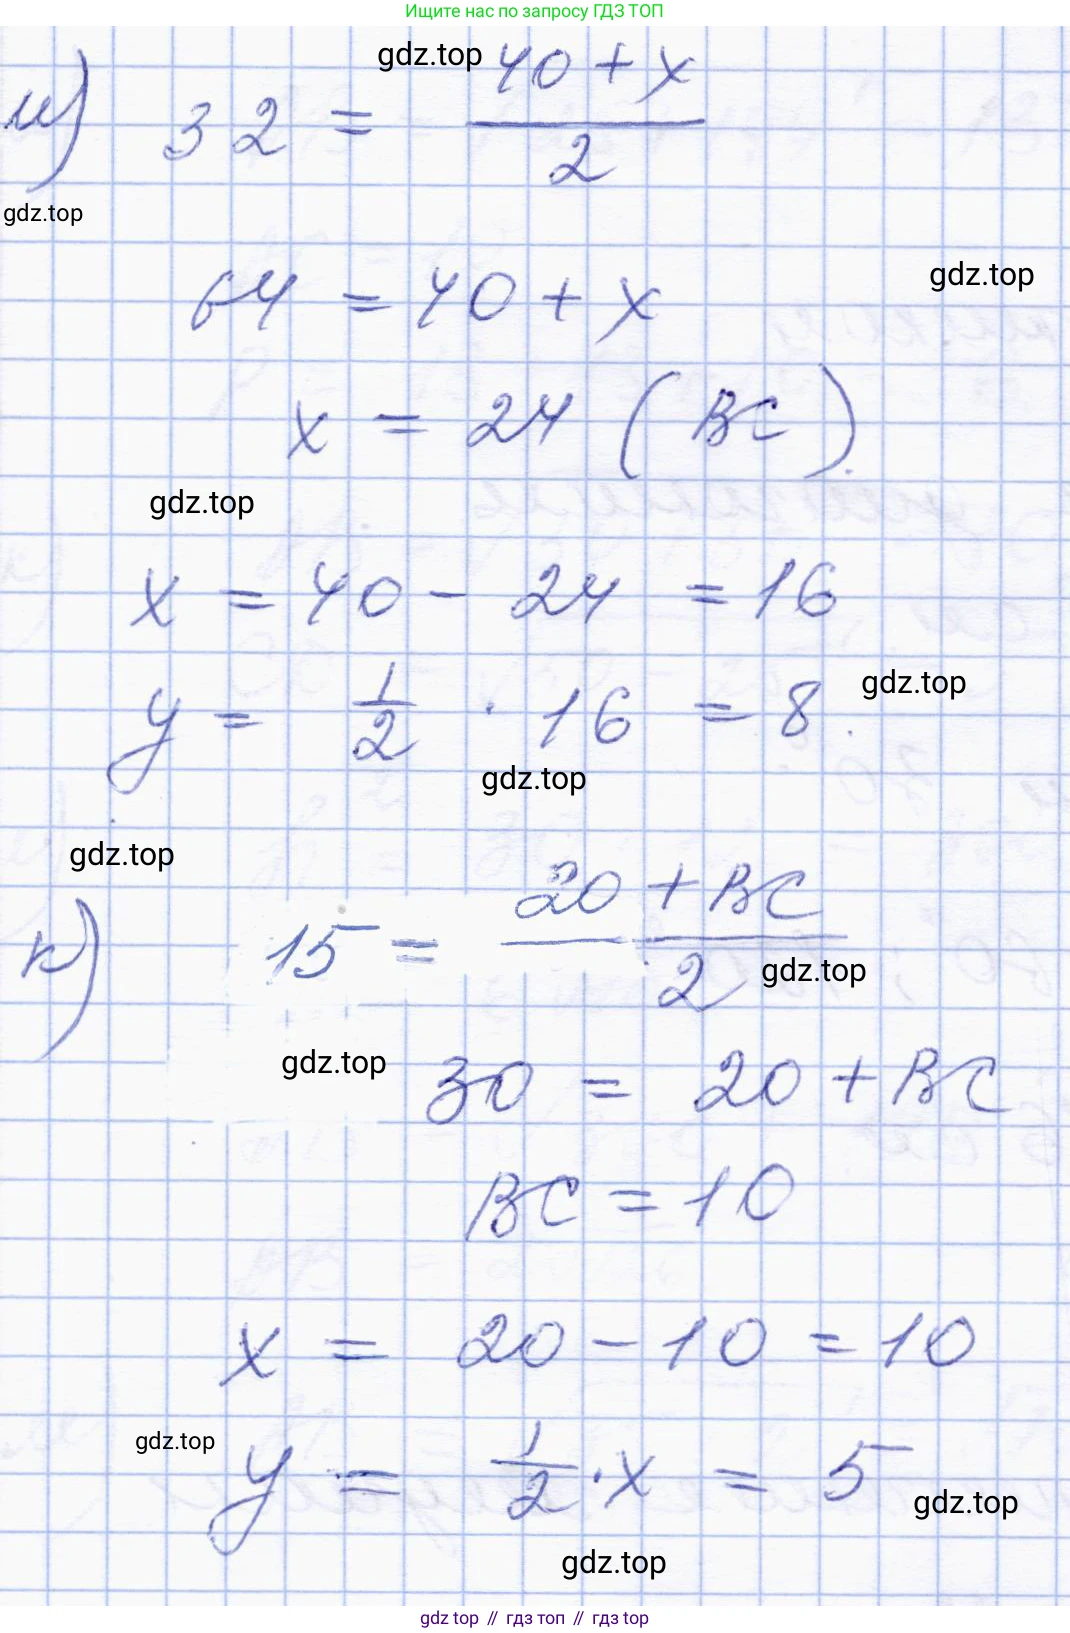 Ищите нас по запросу ГДЗ ТОП
gdz.top
и) 32 = (40 + x)/2
gdz.top
64 = 40 + x
gdz.top
x = 24 (BC).
gdz.top
x = 40 - 24 = 16
y = 1/2 · 16 = 8.
gdz.top
gdz.top
gdz.top
к) 15 = (20 + BC)/2
gdz.top
gdz.top
30 = 20 + BC
BC = 10
x = 20 - 10 = 10
gdz.top
y = 1/2 · x = 5
gdz.top
gdz.top
gdz top // гдз топ // гдз top